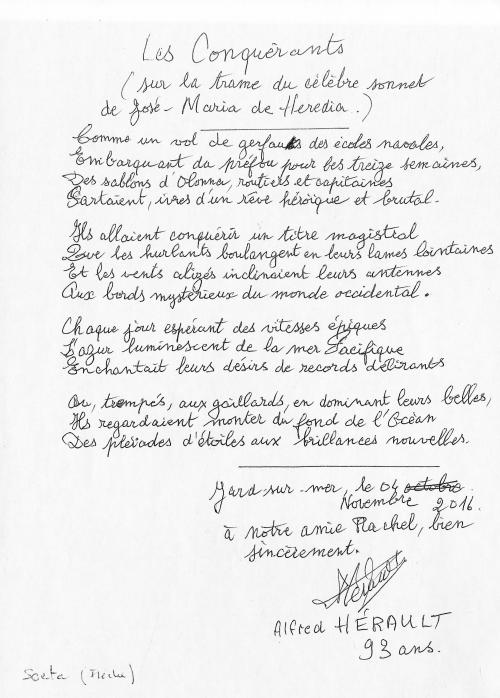 Les Conquérants
(sur la trame du célèbre sonnet
de José-Maria de Heredia.)
Comme un vol de gerfauts des écoles navales,
Embarquant da préfou pour les treize semaines,
Des sablons d'Olonna, routiers et capitaines
Partaient, ivres d'un rêve héroïque et brutal.
Ils allaient conquérir un titre magistral
Que les hurlants boulangent en leurs lames lointaines
Et les vents alizés inclinaient leurs antennes
Aux bords mystérieux du monde occidental.
Chaque jour espérant des vitesses épiques
L'azur luminescent de la mer Pacifique
Enchantait leurs désirs de records délirants
Ou, trempés, aux gaillards, en dominant leurs belles,
Ils regardaient monter du fond de l'Océan
Des pléiades d'étoiles aux brillances nouvelles.
Jard-sur-mer, le 04 octobre
Novembre 2016.
à notre amie Rachel, bien
sincèrement.
Hérault
Alfred HÉRAULT
93 ans.